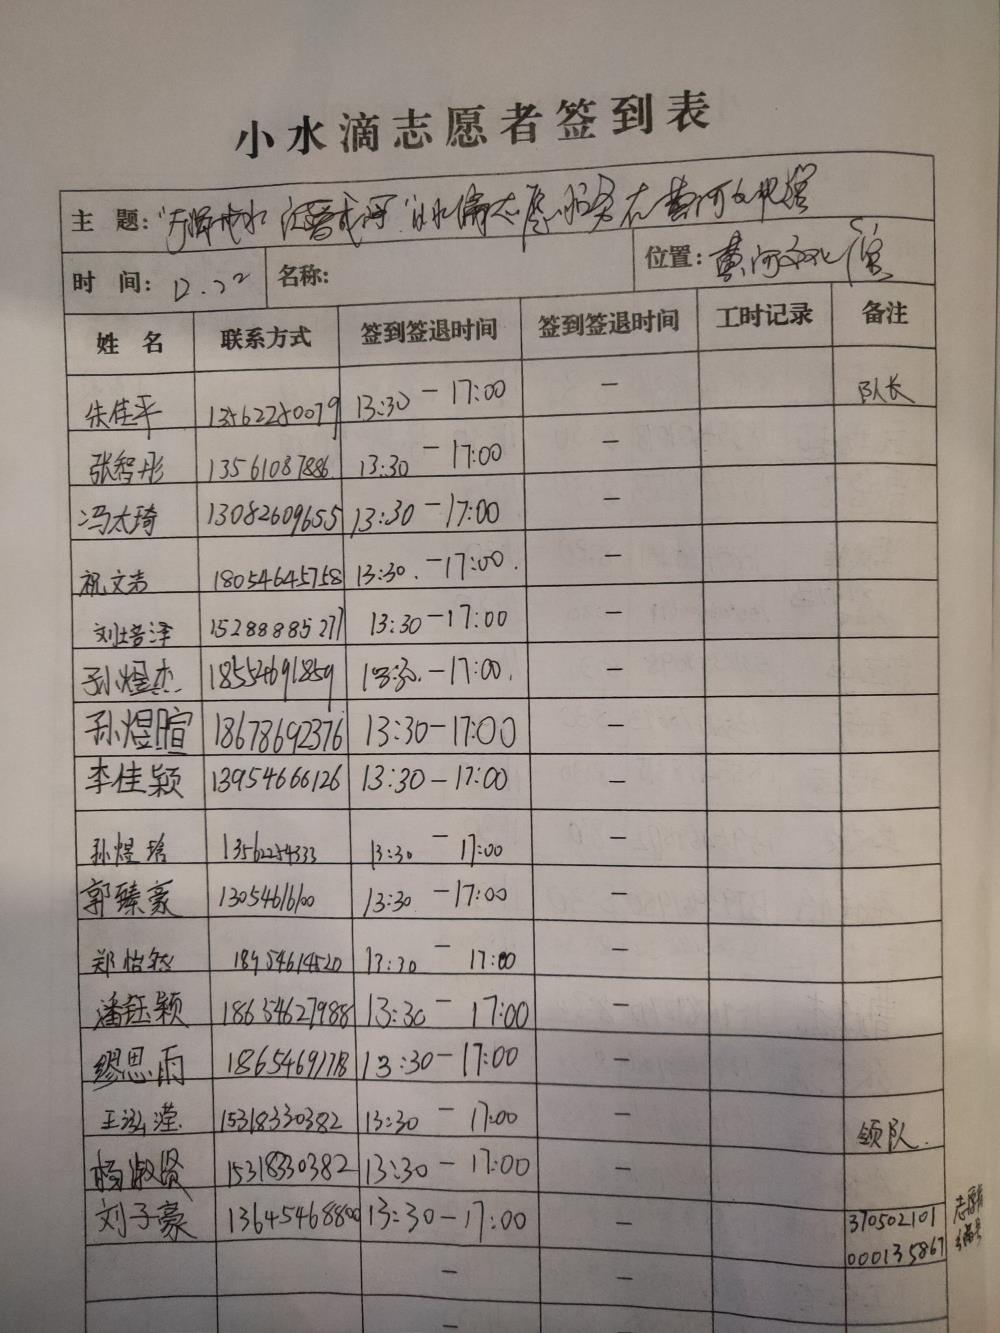 小水滴志愿者签到表
主 题:
时 间: 12.22 名称: 位置: 黄河文化馆
姓 名 联系方式 签到签退时间 签到签退时间 工时记录 备注
朱佳平 13562280079 13:30 — 17:00 — 队长
张智彤 13561087886 13:30 — 17:00 —
冯太琦 13082609655 13:30 — 17:00 —
祝文 18054645758 13:30. — 17:00. —
刘培泽 15288885277 13:30 — 17:00 —
孙煜杰 18554691859 13:30. — 17:00. —
孙煜暄 18678692376 13:30 — 17:00 —
李佳颖 13954666126 13:30 — 17:00 —
孙煜 13562254333 13:30 — 17:00 —
郭臻豪 13054616100 13:30 — 17:00 —
郑怡然 18954614520 13:30 — 17:00 —
潘钰颖 18654627988 13:30 — 17:00 —
缪思雨 18654691718 13:30 — 17:00 —
王泓滢 15318330382 13:30 — 17:00 — 领队.
杨淑贤 15318330382 13:30 — 17:00 —
刘子豪 13645468800 13:30 — 17:00 — 370502101
000135867
志愿者
编号
—
—
—